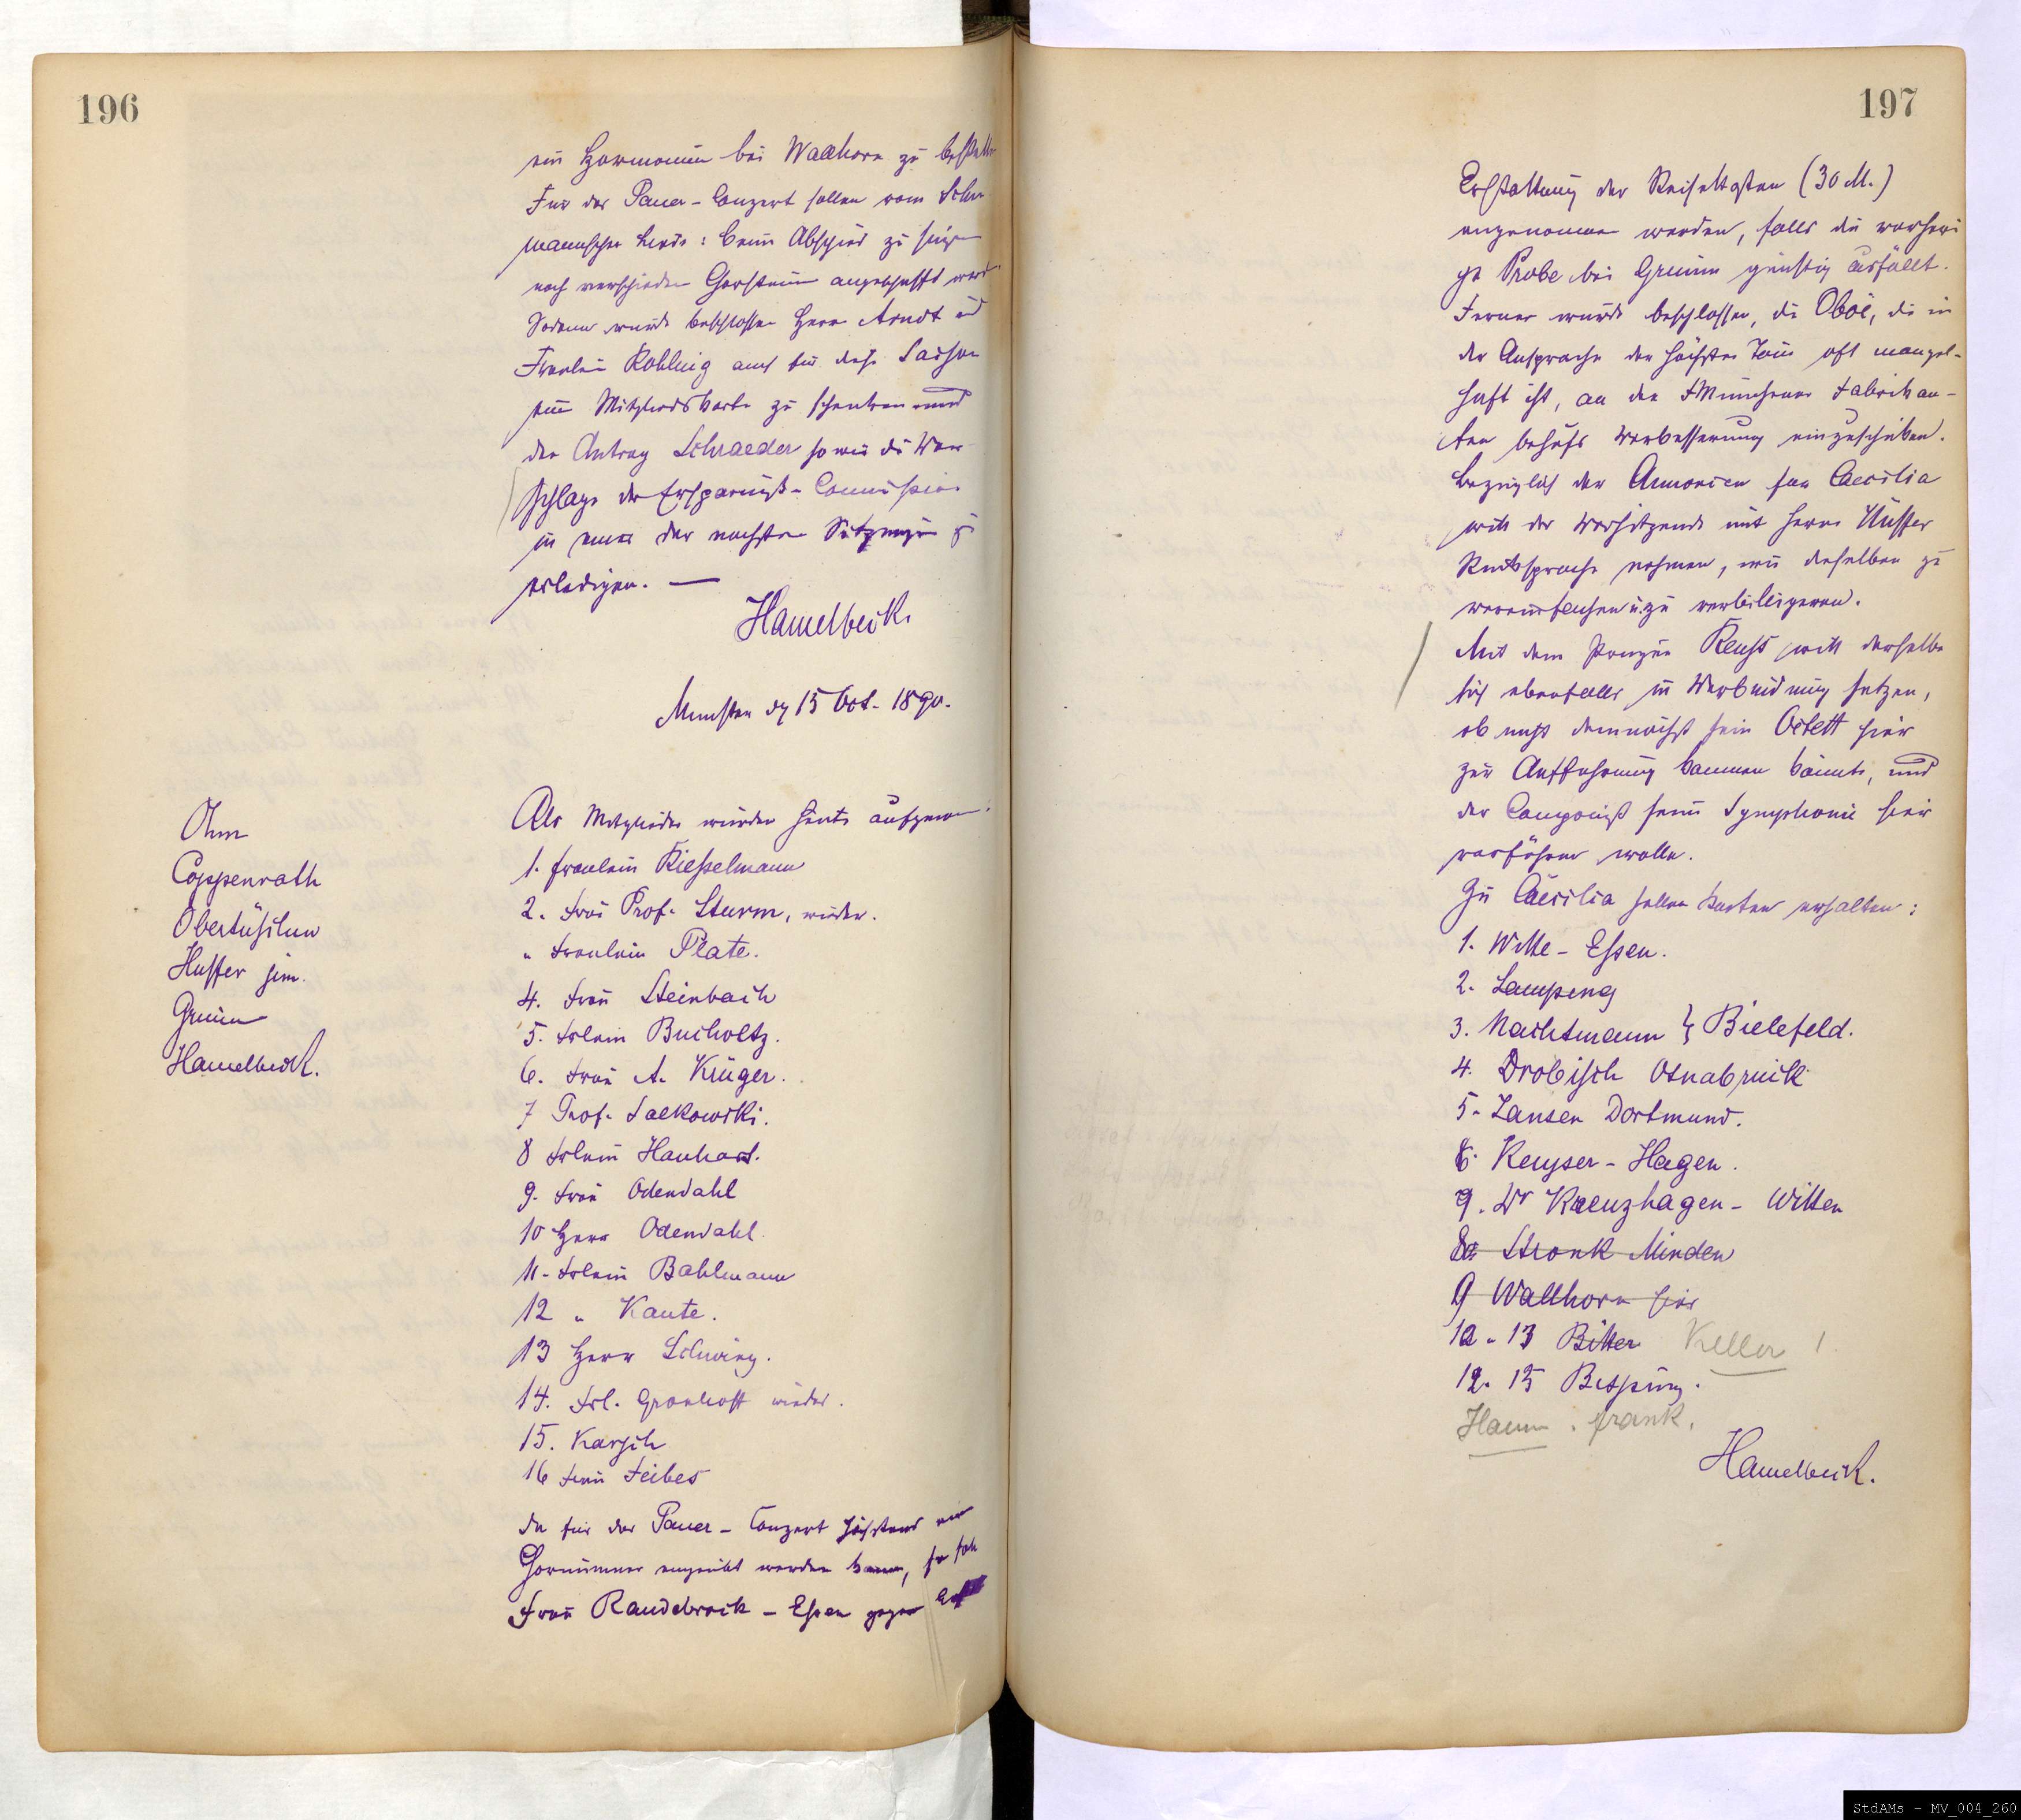 196
ein Harmonium bei Wallhorn zu bestellen
Für das Pauer-Conzert sollen vom Schu-
mannschen Liede: beim Abschied zu singen
noch verschiedene Chorstimmen angeschafft werd.
Sodann wurde beschlossen Herrn Arndt und
Fräulein Rohling auch für diese Saison
eine Mitgliedskarte zu schenken und
den Antrag Schraeder sowie die Vor-
schläge der Ersparniß-Commission
in einer der nächsten Sitzungen zu
erledigen. —
Hamelbeck.
Münster dg 15 Oct. 1890.
Ohm
Coppenrath
Obertüschen
Hüffer jun.
Grimm
Hamelbeck.
Als Mitglieder wurden heute aufgenom:
1. Fräulein Kiesselmann
2. Frau Prof. Sturm, wieder.
" Fräulein Plate.
4. Frau Steinbach
5. Frlein Bucholtz.
6. Frau A. Krüger.
7 Prof. Salkowski.
8 Frlein Hanhart.
9. Frau Odendahl
10 Herr Odendahl.
11. Frlein Bahlmann
12 " Kaute.
13 Herr Schwing.
14. Frl. Gronhoff wieder.
15. Karsch
16 Frau Feibes
Da für das Pauer-Conzert höchstens eine
Chornummer eingeübt werden kann, so soll
Frau Randebrock - Essen gegen
197
Erstattung der Reisekosten (30 M.)
angenommen werden, falls die vorheri-
ge Probe bei Grimm günstig ausfällt.
Ferner wurde beschlossen, die Oboë, die in
der Ansprache der höchsten Töne oft mangel-
haft ist, an den Münchener Fabrikan-
ten behufs Verbesserung einzuschicken.
Bezüglich der Annoncen für Caecilia
will der Vorsitzende mit Herrn Hüffer
Rücksprache nehmen, um dieselben zu
vereinfachen u. zu verbilligeren.
Mit dem Prinzen Reuss will derselbe
sich ebenfalls in Verbindung setzen,
ob nicht demnächst sein Octett hier
zur Aufführung kommen könnte, und
der Componist seine Symphonie hier
vorführen wolle.
Zu Cäcilia sollen Karten erhalten:
1. Witte - Essen.
2. Lamping
3. Nachtmann } Bielefeld.
4. Drobisch Osnabrück
5. Jansen Dortmund.
6. Keyser - Hagen.
9. Dr Kreuzhagen - Witten
8. Stronk Minden
9 Wallhorn hier
12. 13 Bitter Keller 1
12. 13 Bisping.
Hamm. Frank.
Hamelbeck.
StdAMs - MV_004_260